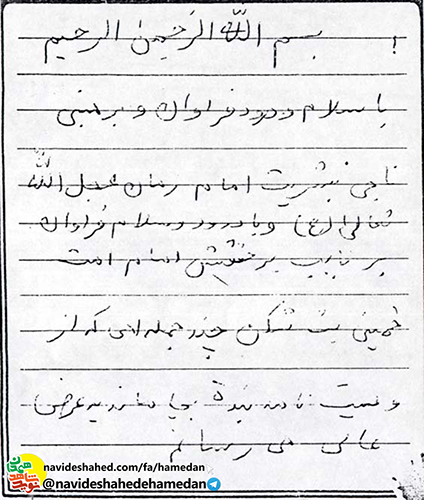 بسم الله الرحمن الرحیم
با سلام و درود فراوان و بر
ناجی بشریت امام زمان عجل الله
تعالی (عج) و با درود و سلام فراوان
بر نایب برحقش امام امت
خمینی بت شکن چند جمله ای که از
وصیت نامه بنده بجا مانده به عرض
عالی می رسانم
navideshahed.com/fa/hamedan
@navideshahedehamedan